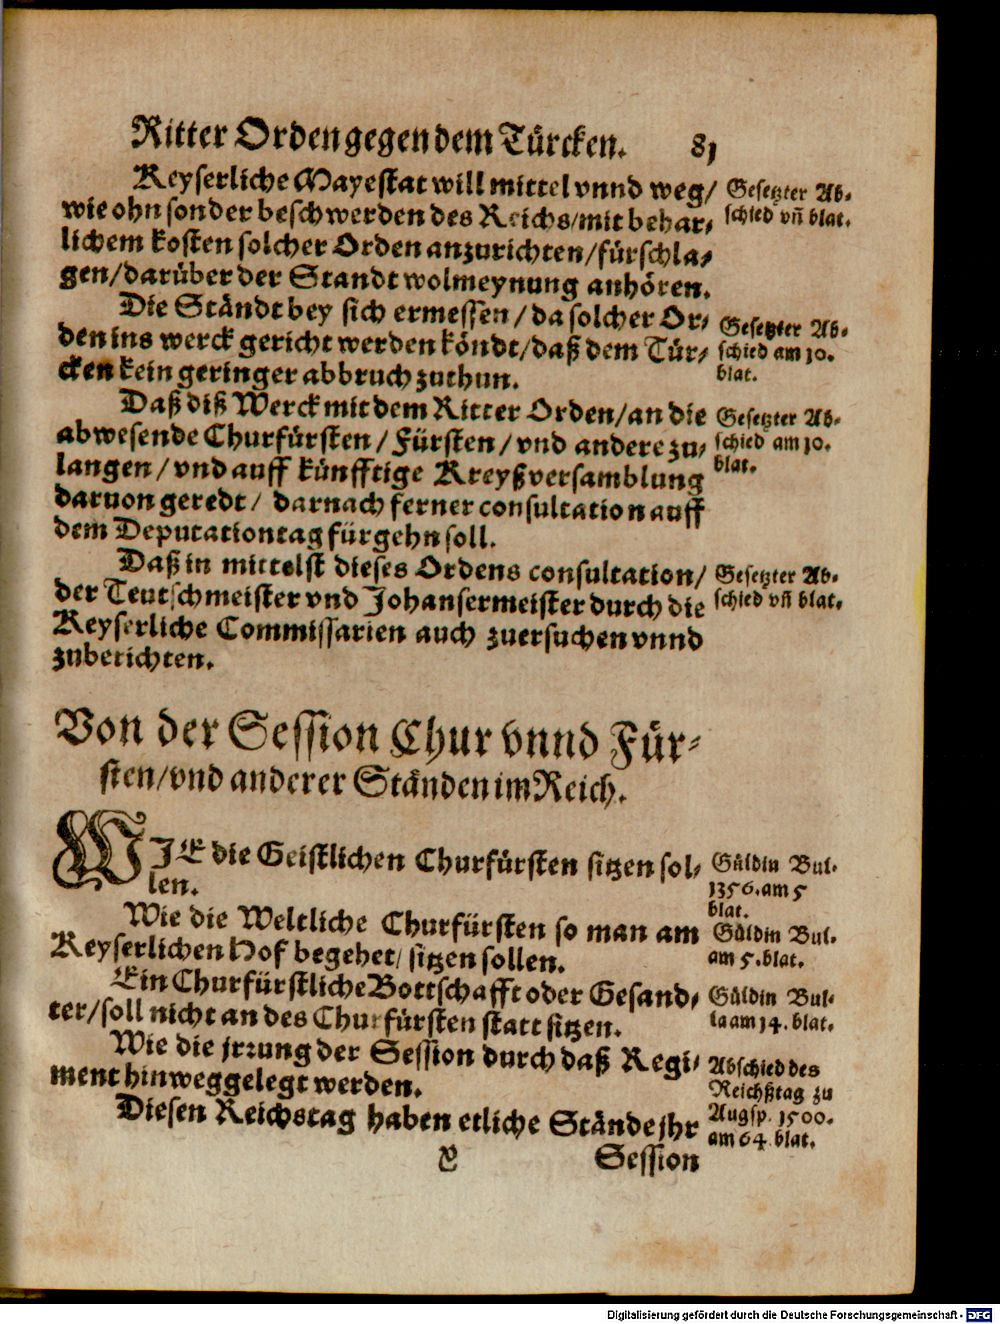 Ritter Orden gegen dem Türcken. 81
Keyserliche Mayestat will mittel vnnd weg/
wie ohn sonder beschwerden des Reichs/mit behar⸗
lichem kosten solcher Orden anzurichten/fürschla⸗
gen/darüber der Standt wolmeynung anhören.
Gesetzter Ab⸗
schied vñ blat.
Die Ständt bey sich ermessen/da solcher Or⸗
den ins werck gericht werden köndt/daß dem Tür⸗
cken kein geringer abbruch zuthun.
Gesetzter Ab⸗
schied am 10.
blat.
Daß diß Werck mit dem Ritter Orden/an die
abwesende Churfürsten/Fürsten/vnd andere zu⸗
langen/vnd auff künfftige Kreyßversamblung
daruon geredt/ darnach ferner consultation auff
dem Deputationtag fürgehn soll.
Gesetzter Ab⸗
schied am 10.
blat.
Daß in mittelst dieses Ordens consultation/
der Teutschmeister vnd Johansermeister durch die
Keyserliche Commissarien auch zuersuchen vnnd
zuberichten.
Gesetzter Ab⸗
schied vñ blat.
Von der Session Chur vnnd Für⸗
sten/vnd anderer Ständen im Reich.
WIE die Geistlichen Churfürsten sitzen sol⸗
len.
Güldin Bul.
1356. am 5
blat.
Wie die Weltliche Churfürsten so man am
Keyserlichen Hof begehet/ sitzen sollen.
Güldin Bul.
am 5. blat.
Ein Churfürstliche Bottschafft oder Gesand⸗
ter/soll nicht an des Churfürsten statt sitzen.
Güldin Bul⸗
la am 14. blat.
Wie die jrrung der Session durch daß Regi⸗
ment hinweggelegt werden.
Abschied des
Reichßtag zu
Augsp. 1500.
am 64 blat.
Diesen Reichstag haben etliche Stände jhr
X Session
Digitalisierung gefördert durch die Deutsche Forschungsgemeinschaft - DFG